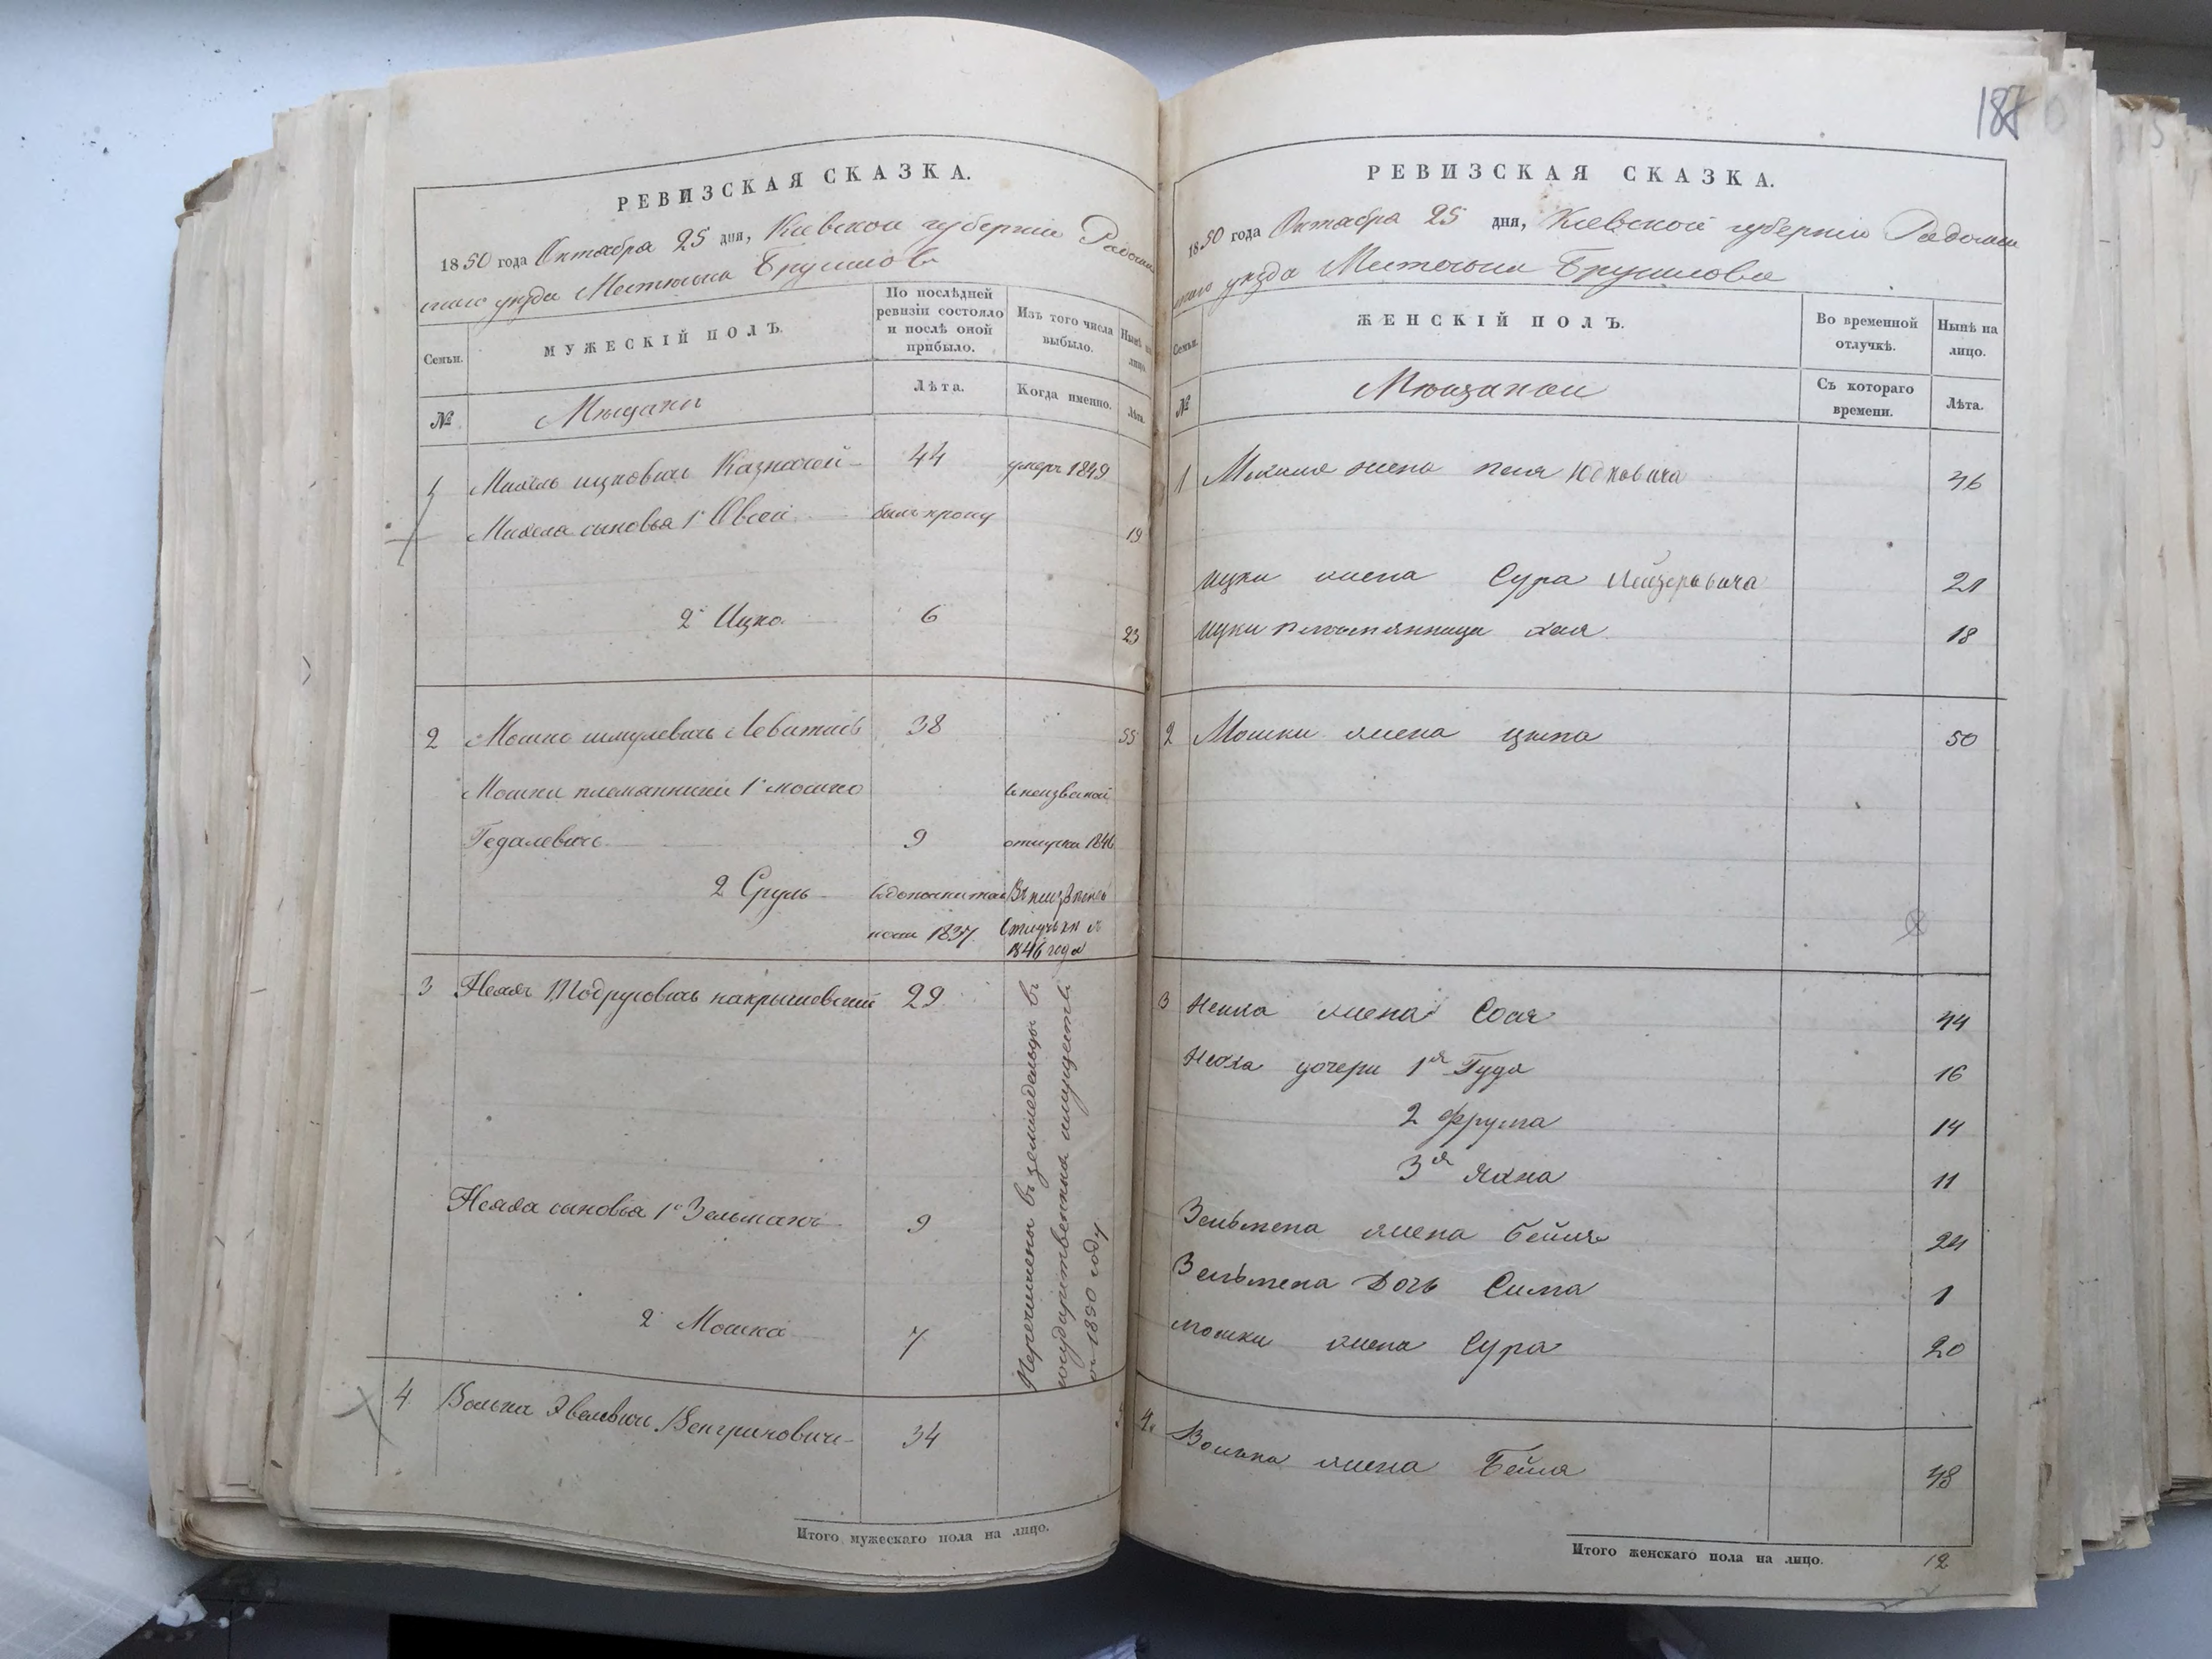 РЕВИЗСКАЯ СКАЗКА.
1850 года Октября 25 дня, Киевской губернии Радомы
слаго уезда Местечка Брусилова
Семьи.
МУЖЕСКІЙ ПОЛЪ.
По послѣдней ревизіи состояло и послѣ оной прибыло.
Изъ того числа выбыло.
Нынѣ на лицо.
№
Мещане
Лѣта.
Когда именно.
Лѣта.
1 Михель ицковичь Казначей 44 умеръ 1849
Михеля сыновья 1й Овсей 19
2й Ицко 6 23
2 Мошко шмулевичь 38 55
Мошки племянники 1й мошко
Гедалевичь 9 отлучки 1846
2 Сруль Въ неизвѣстной
1837. отлучки съ
1846 года
3 29
сыновья 1й Зельманъ 9
2й Мошко 7
Перечислены въ земледельцы въ
государственныя имущества
въ 1850 году
4 Волько 34
Итого мужескаго пола на лицо.
187
РЕВИЗСКАЯ СКАЗКА.
1850 года Октября 25 дня, Киевской губерніи Радомы
слаго уезда Местечка Брусилова
Семьи.
ЖЕНСКІЙ ПОЛЪ.
Во временной отлучкѣ.
Нынѣ на лицо.
№
Мещанки
Съ котораго времени.
Лѣта.
1 Михеля жена песя Юдковича 46
ицки жена Сура Лейзеровича 21
ицки племянница хая 18
2 Мошки жена ципа 50
3 жена Сося 44
дочери 1я Гуда 16
2 Фрума 14
3я Яхна 11
Зельмена жена бейля 24
Зельмена Дочь Сима 1
мошки жена Сура 20
4. Волька жена Бейля 48
Итого женскаго пола на лицо. 12